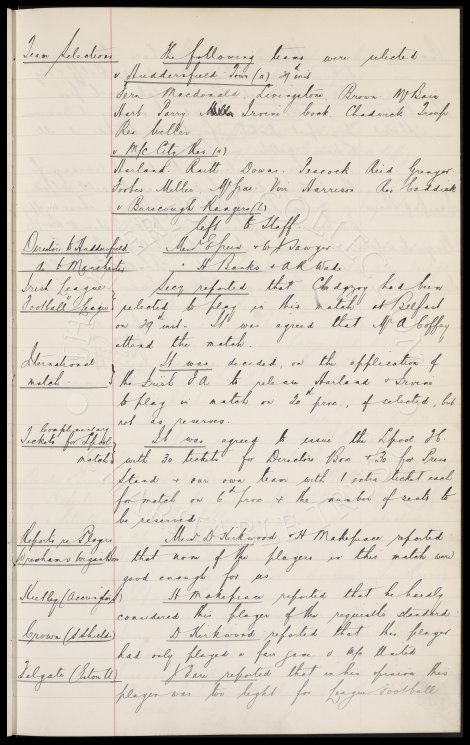 Team Selections The following teams were selected
v Huddersfield Town (a) 27th inst
Fern Macdonald Livingstone Brown McBain
Hart Parry Irvine Cook Chadwick Troup
Res Weller
v M/c City Res (a)
Harland Raitt Downs Peacock Reid Grenyer
Forbes Miller Virr Harrison Res
v Burscough Rangers (h)
left to Staff.
Directors to Huddersfield Messrs E Green & W J Sawyer
do to Manchester " H Banks & A R Wade
Irish League Secy reported that Chedgzoy had been
v Football League selected to play in this match at Belfast
on 29th inst. It was agreed that Mr A Coffey
attend the match.
International It was decided, on the application of
match the Irish F A to release Harland & Irvine
to play in match on 20th prox, if selected, but
not as reserves.
Complimentary
Tickets for L'pool It was agreed to issue the L'pool F.C.
match with 30 tickets for Directors Box & 30 for Press
Stand & our own team with 1 extra ticket each
for match on 6th prox & the number of seats to
be reserved
Reports re Players Messrs D Kirkwood & H Makepeace reported
that none of the players in this match were
good enough for us
(Accrington) H Makepeace reported that he hardly
considered this player of the requisite standard.
Crown (S Shields) D Kirkwood reported that this player
had only played a fair game v M/c United
Felgate (Eston U) J Dare reported that in his opinion this
player was too light for League football